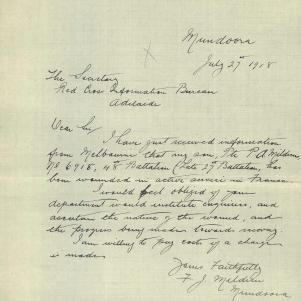 Mundoora
July 27 1918
The Secretary
Red Cross Information Bureau
Adelaide
Dear Sir
I have just received information
from Melbourne that my son, Pte P A Mildren
No 6918, 48 Battalion (Late 27 Battalion, has
been wounded in active service in France
I would feel obliged if your
department would institute enquiries, and
ascertain the nature of the wound, and
the progress being made towards recovery.
I am willing to pay costs if a charge
is made.
Yours Faithfully
F J. Mildren
Mundoora